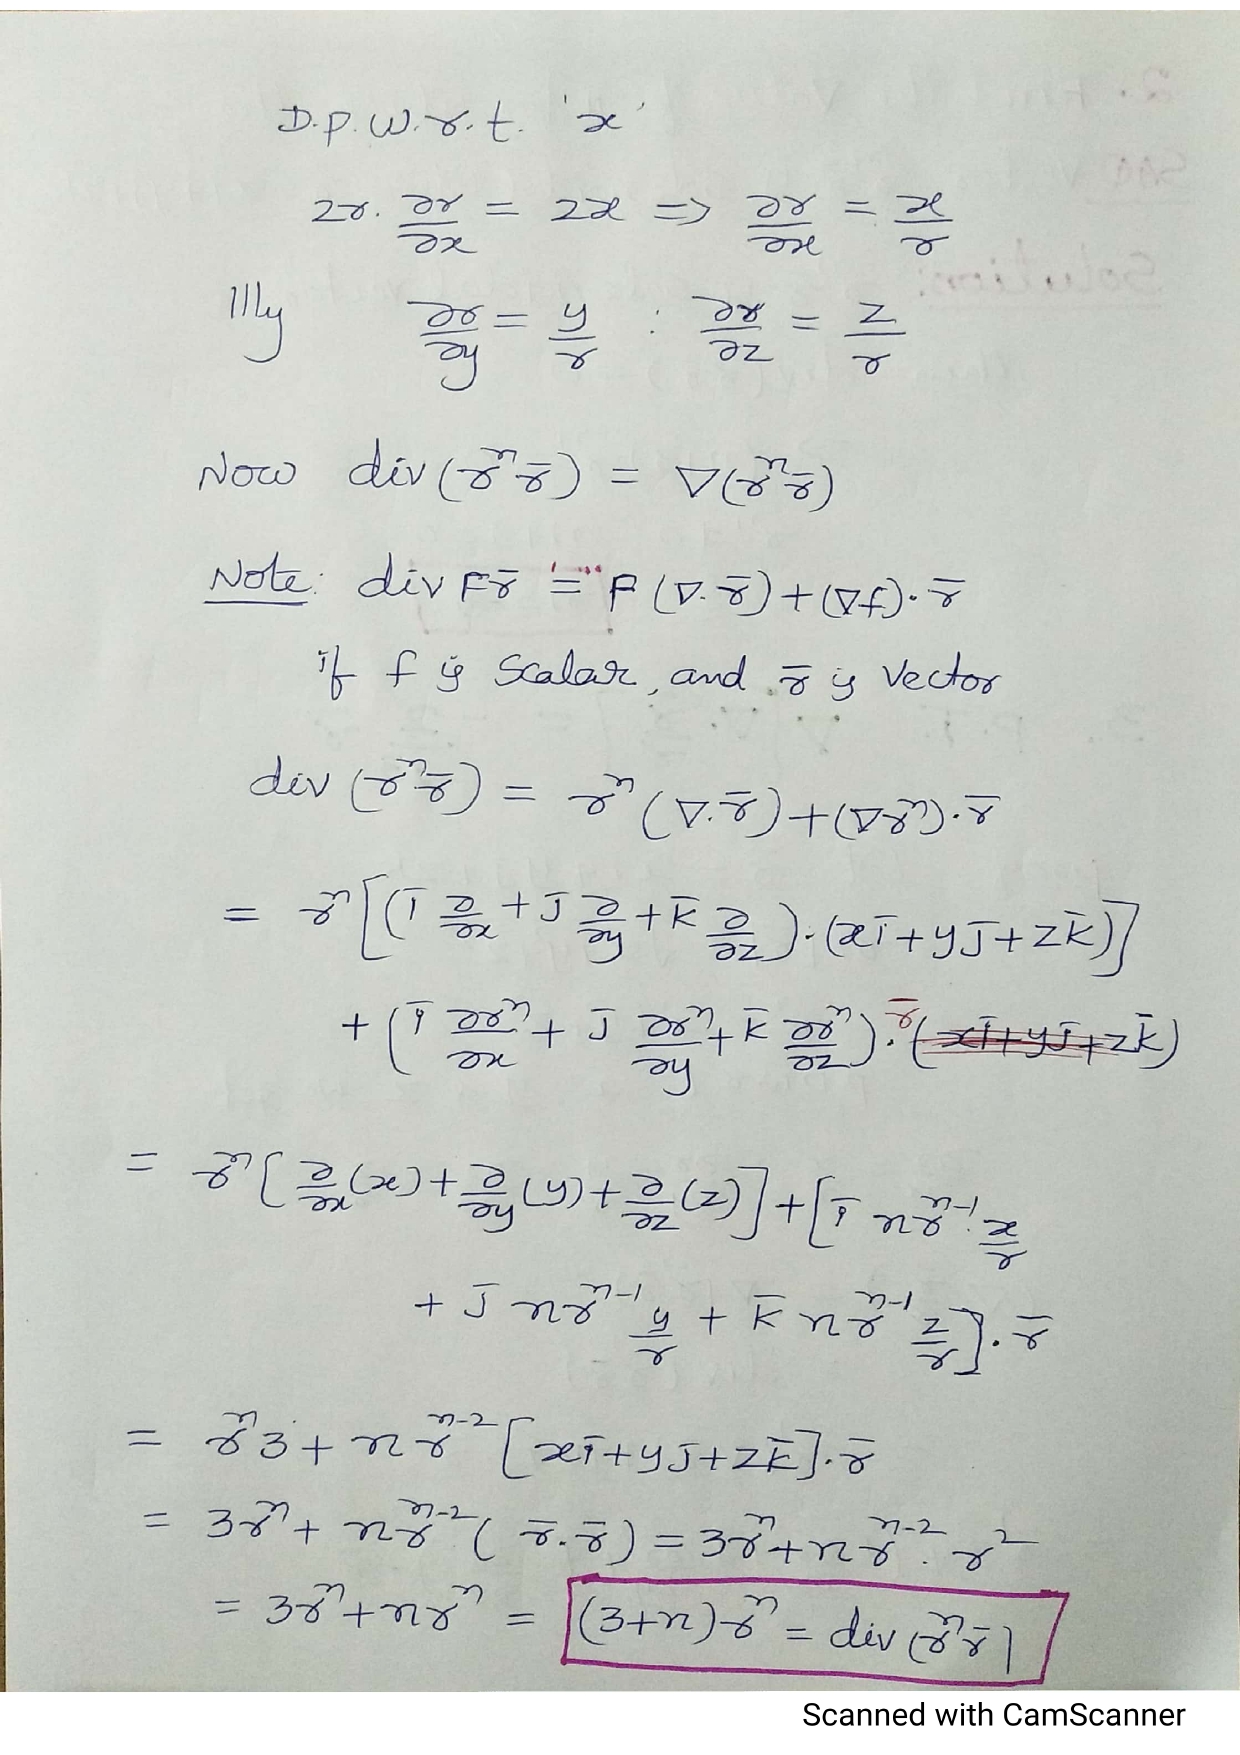 D.P.W.r.t. 'x'
2r. ∂r/∂x = 2x => ∂r/∂x = x/r
IIIly ∂r/∂y = y/r : ∂r/∂z = z/r
Now div(rⁿ r̄) = ∇(rⁿ r̄)
Note: div F r̄ = F (∇. r̄) + (∇f). r̄
if f is Scalar, and r̄ is Vector
div (rⁿ r̄) = rⁿ (∇. r̄) + (∇rⁿ). r̄
= rⁿ [(ī ∂/∂x + j̄ ∂/∂y + k̄ ∂/∂z). (xī + yj̄ + zk̄)]
+ (ī ∂rⁿ/∂x + j̄ ∂rⁿ/∂y + k̄ ∂rⁿ/∂z). r̄ (xī + yj̄ + zk̄)
= rⁿ [∂/∂x (x) + ∂/∂y (y) + ∂/∂z (z)] + [ī n rⁿ⁻¹. x/r
+ j̄ n rⁿ⁻¹ y/r + k̄ n rⁿ⁻¹ z/r]. r̄
= rⁿ 3 + n rⁿ⁻² [xī + yj̄ + zk̄]. r̄
= 3rⁿ + n rⁿ⁻² ( r̄. r̄) = 3rⁿ + n rⁿ⁻². r²
= 3rⁿ + n rⁿ = (3+n) rⁿ = div (rⁿ r̄)
Scanned with CamScanner